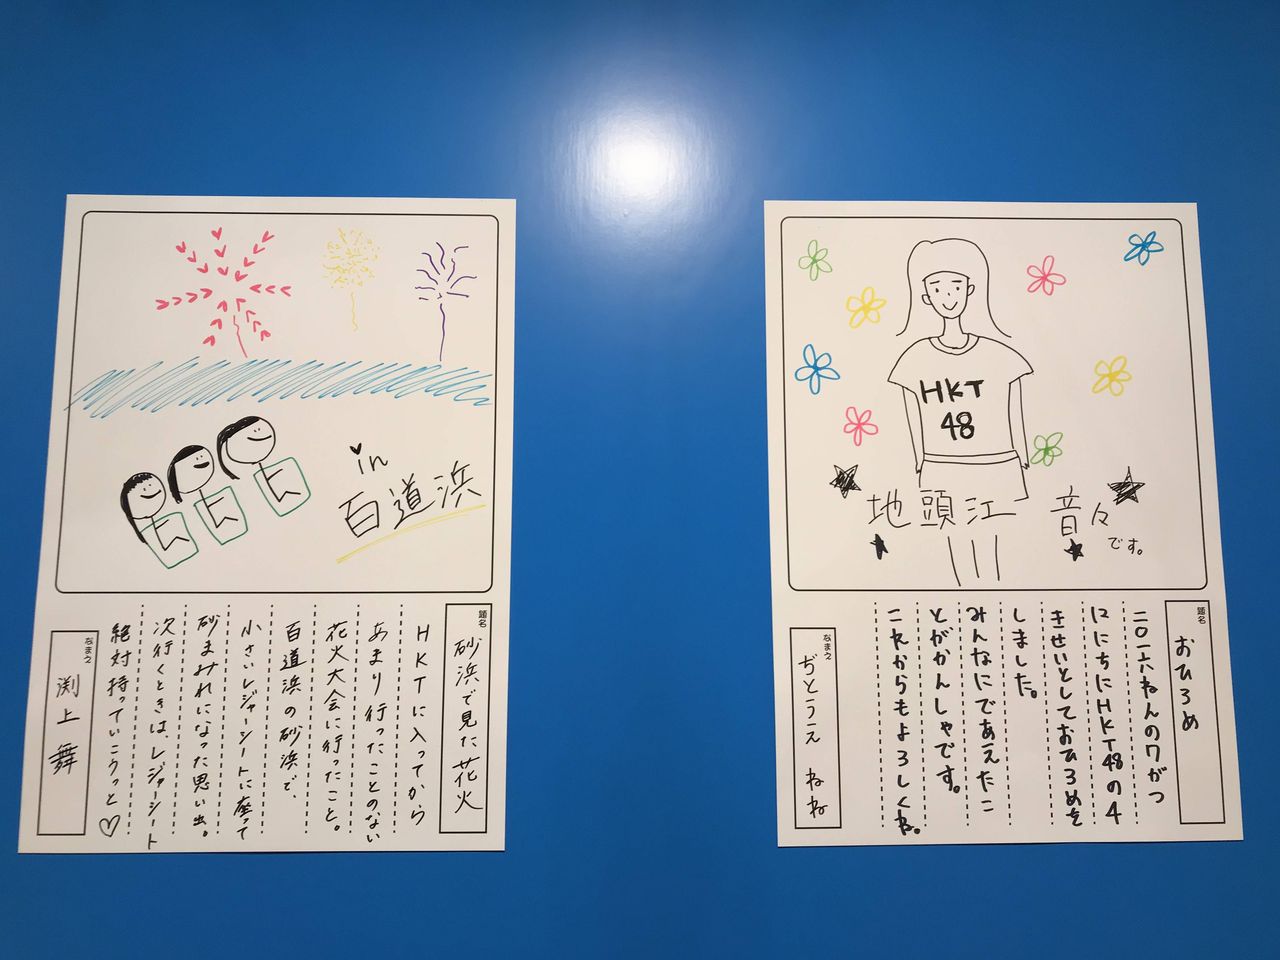 in
百道浜
題名
砂浜で見た花火
HKTに入ってから
あまり行ったことのない
花火大会に行ったこと。
百道浜の砂浜で、
小さいレジャーシートに座って
砂まみれになった思い出。
次行くときは、レジャーシート
絶対持っていこうっと♡
なまえ
渕上 舞
HKT
48
地頭江 音々
です。
題名
おひろめ
二〇一六ねんの7がつ
12にちにHKT48の4
きせいとしておひろめを
しました。
みんなにであえたこ
とがかんしゃです。
これからもよろしくね。
なまえ
ぢとうえ ねね